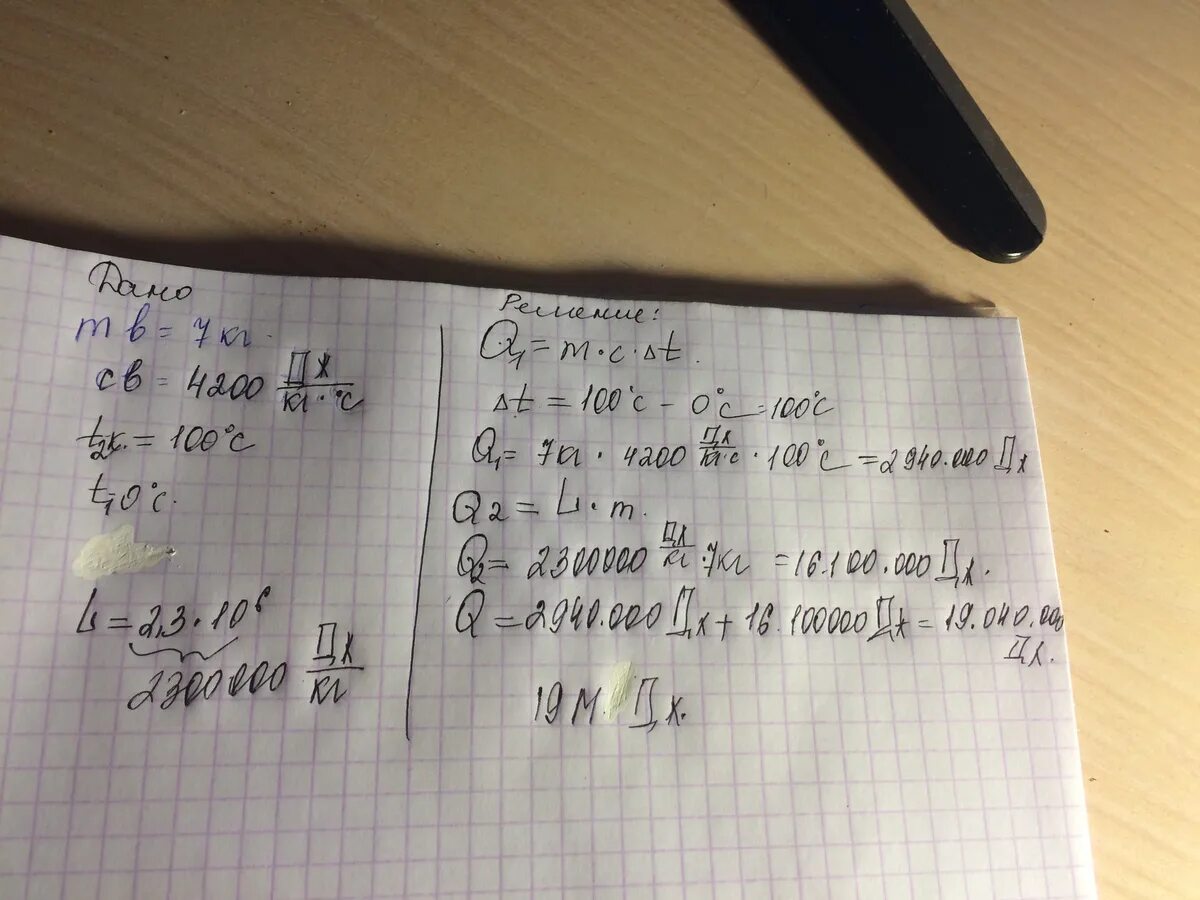 Дано
m в = 7 кг.
c в = 4200 Дж/кг·°C
t₂к. = 100°C
t₁=0°C.
L = 2,3·10⁶
2300000 Дж/кг
Решение:
Q₁ = m·c·Δt.
Δt = 100°C – 0°C = 100°C
Q₁ = 7кг · 4200 Дж/кг·c · 100°C = 2940.000 Дж
Q2 = L·m.
Q₂ = 2300000 Дж/кг ·7кг = 16.100.000 Дж.
Q = 2940.000 Дж + 16.100000 Дж = 19.040.000
Дж.
19 М Дж.